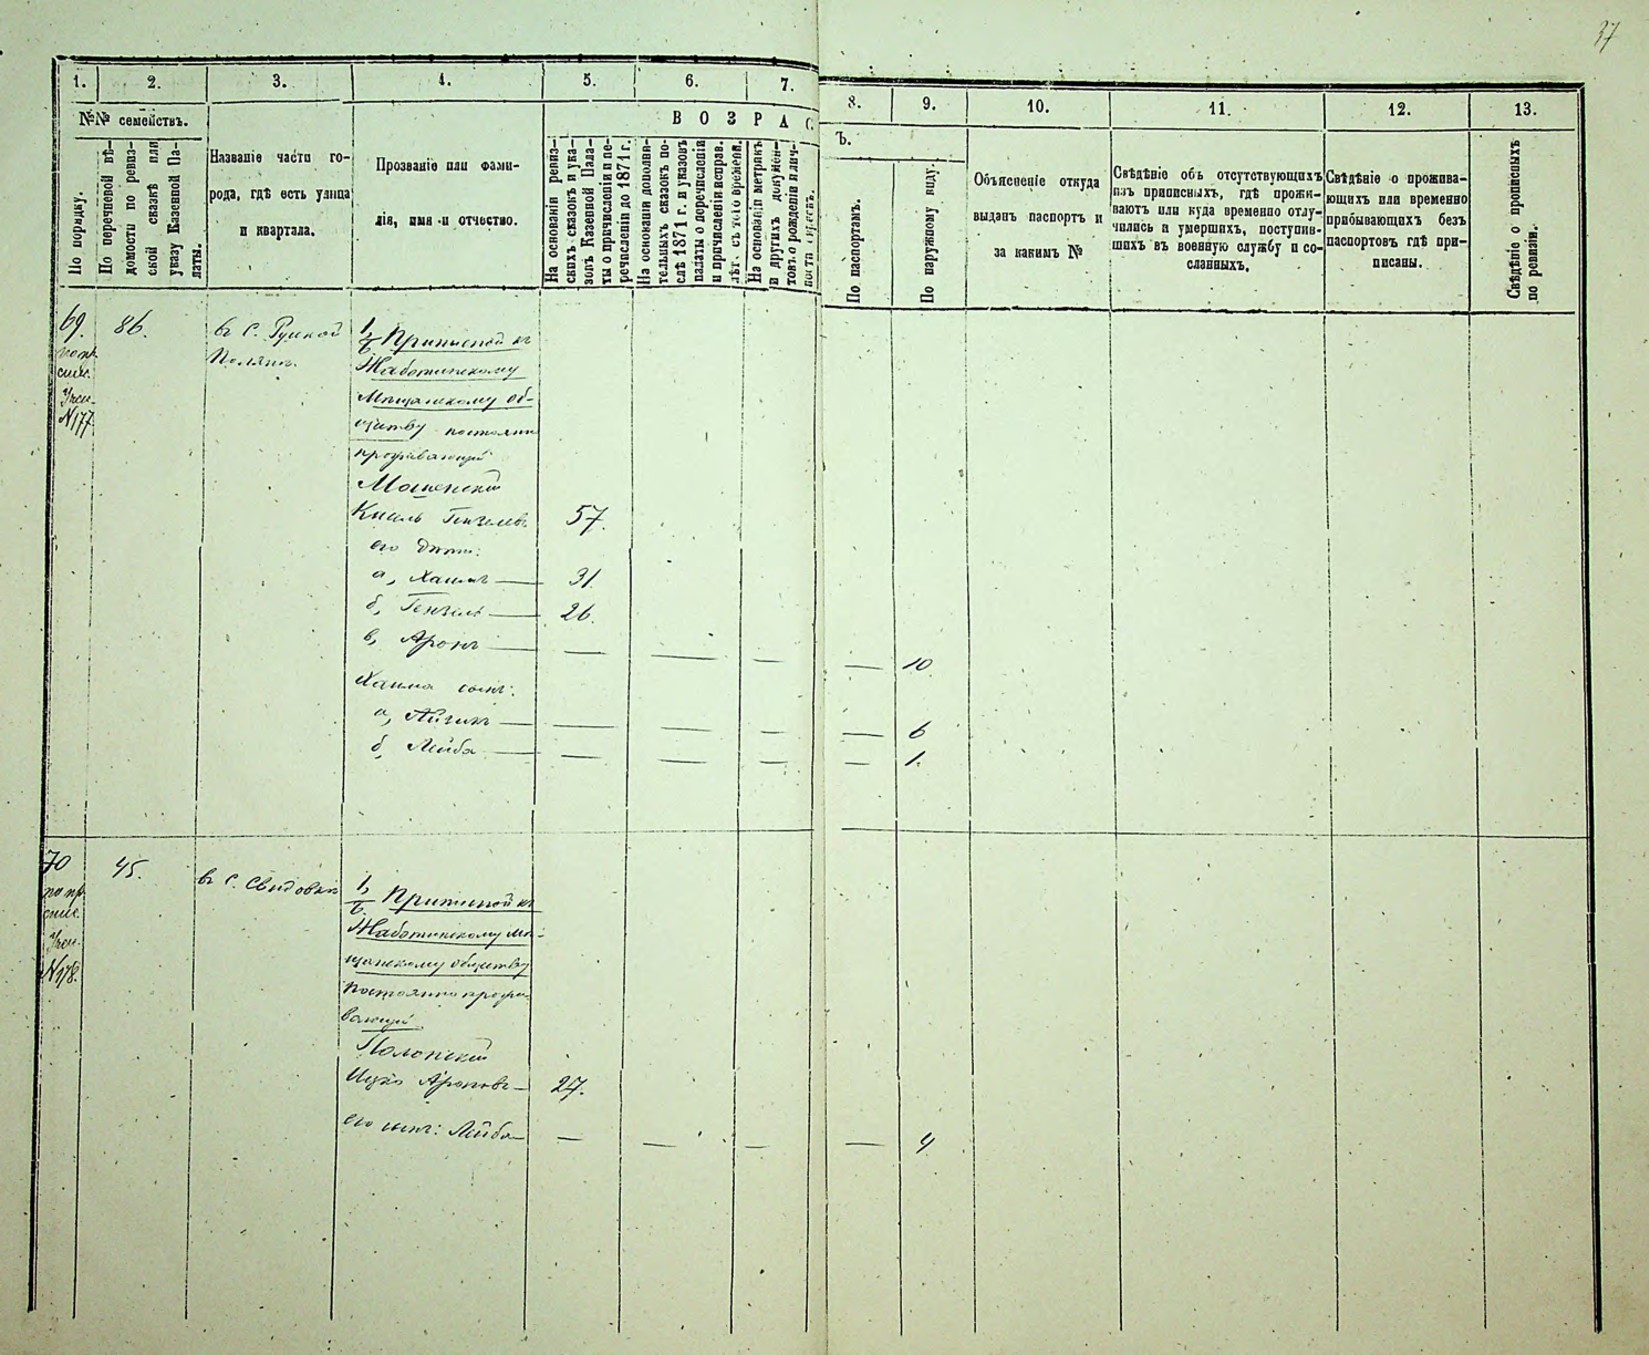 37
1.
2.
3.
4.
5.
6.
7.
8.
9.
10.
11.
12.
13.
№№ семействъ.
По порядку.
По перечневой вѣ-
домости по ревиз-
ской сказкѣ или
указу Казенной Па-
латы.
Названіе части го-
рода, гдѣ есть улица
и квартала.
Прозваніе или фами-
лія, имя и отчество.
ВОЗРАС
Ъ.
На основаніи ревиз-
скихъ сказокъ и ука-
зовъ Казенной Пала-
ты о причисленіи и пе-
речисленіи до 1871 г.
На основаніи дополни-
тельныхъ сказокъ по-
слѣ 1871 г. и указовъ
палаты о перечисленіи
и причисленіи исправ.
лѣт. съ того времени.
На основаніи метрикъ
и другихъ докумен-
товъ о рожденіи и лич-
По паспортамъ.
По наружному виду.
Объясненіе откуда
выданъ паспортъ и
за какимъ №
Свѣдѣніе объ отсутствующихъ
изъ приписныхъ, гдѣ прожи-
ваютъ или куда временно отлу-
чились и умершихъ, поступив-
шихъ въ военную службу и со-
сланныхъ.
Свѣдѣніе о прожива-
ющихъ или временно
прибывающихъ безъ
паспортовъ гдѣ при-
писаны.
Свѣдѣніе о прописныхъ
по ревизіи.
69.
86.
въ С. Руской
Полянѣ.
N177
Приписной къ
Жаботинскому
Мѣщанскому об-
ществу постоянно
проживающій
Мошенскій
Кисель Гензелевъ
57.
его дѣти:
а, Хаимъ — 31.
б, Гензель — 26.
в, Аронъ — — — — — 10
Хаима сынъ:
а, Айзикъ — — — — — 6
б, Лейба — — — — — 1.
70
45.
въ С. Свидовкѣ
N178.
Приписной къ
Жаботинскому мѣ-
щанскому обществу
постоянно прожи-
вающій
Полонскій
Ицко Ароновъ — 27.
его сынъ: Лейба — — — — — 4